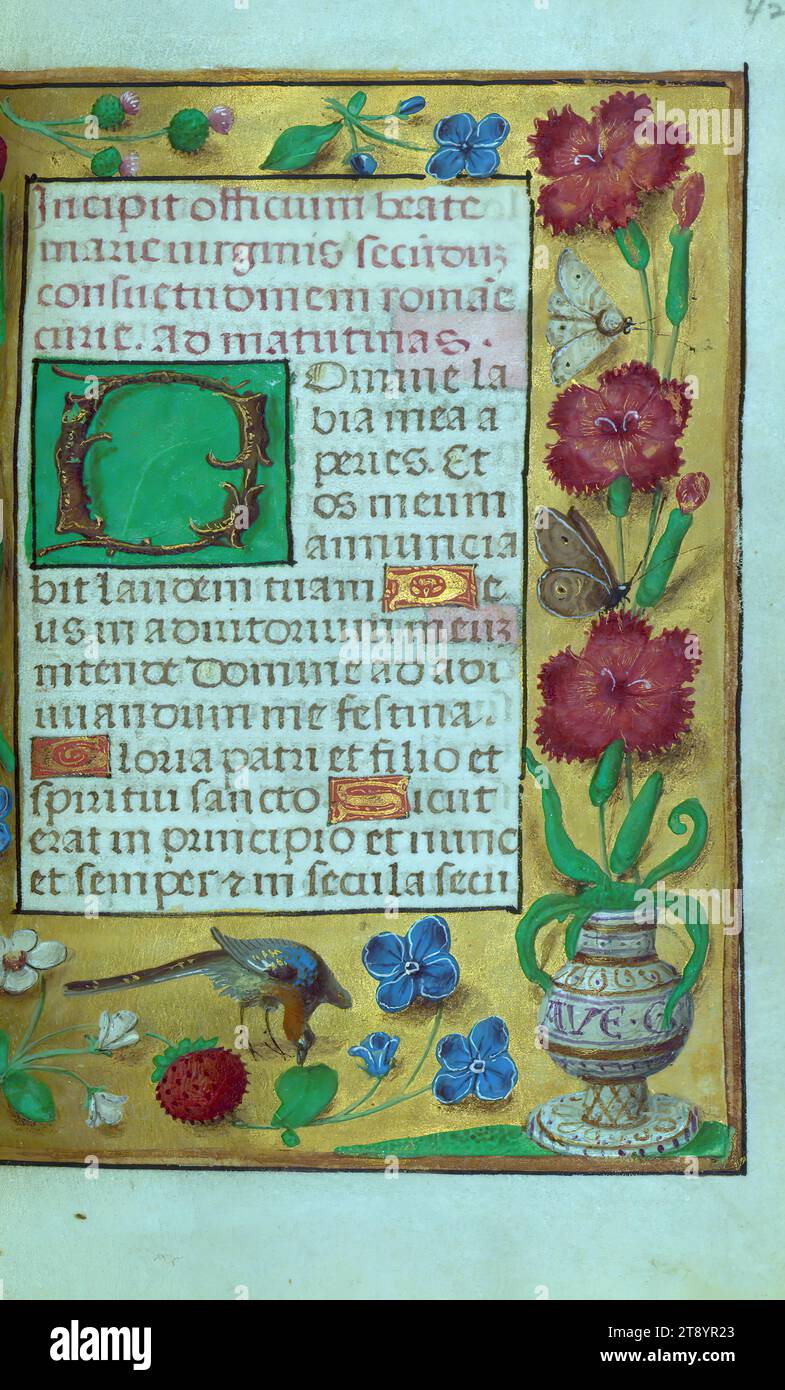 42
Incipit officium beate
marie uirginis secūdūz
consuetudinem romāe
curie. Ad matutinas.
Domine la
bia mea a
peries. Et
os meum
annuncia
bit laudem tuam De
us in adiutorium meuz
intende Domine ad adi
uuandum me festina.
Gloria patri et filio et
spiritui sancto Sicut
erat in principio et nunc
et semper ⁊ in secula secu
AVE·G
alamy
Image ID: 2T8YR23
www.alamy.com